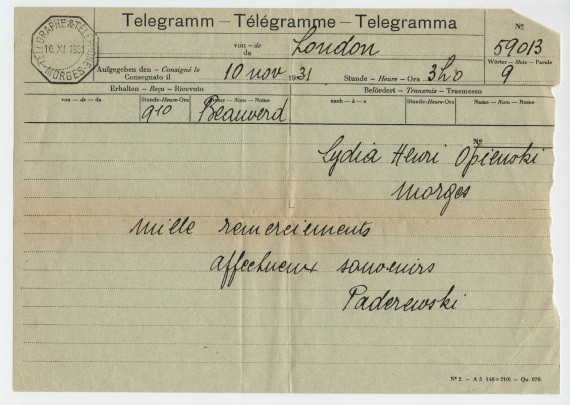 Telegramm – Télégramme – Telegramma
TÉLÉGRAPHE & TÉLÉPHONE
10. XI. 1931
MORGES
von – de
da
London
No
59013
Wörter – Mots – Parole
9
Aufgegeben den – Consigné le
Consegnato il
10 nov 1931
Stunde – Heure – Ora 3h0
Erhalten – Reçu – Ricevuto
Befördert – Transmis – Trasmesso
von – de – da
Stunde-Heure-Ora
Name – Nom – Nome
nach – à – a
Stunde-Heure-Ora
Name – Nom – Nome
910
Beauverd
No
Lydia Henri Opienski
Morges
mille remerciements
affectueux souvenirs
Paderewski
No 2. – A 5 (148×210). – Qu. 070.